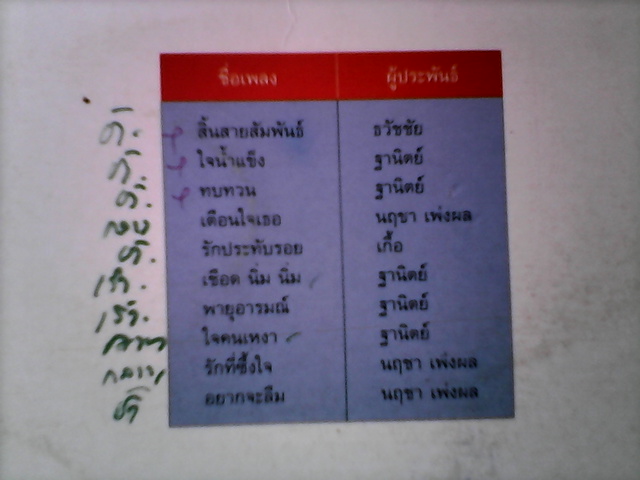 ชื่อเพลง ผู้ประพันธ์
สิ้นสายสัมพันธ์ ธวัชชัย
ช้า. ใจน้ำแข็ง ฐานิตย์
ช้า. ทบทวน ฐานิตย์
เตือนใจเธอ นฤชา เพ่งผล
ช้า. รักประทับรอย เกื้อ
เร็ว. เชือด นิ่ม นิ่ม ฐานิตย์
เร็ว. พายุอารมณ์ ฐานิตย์
ใจคนเหงา ฐานิตย์
กลาง รักที่ซึ้งใจ นฤชา เพ่งผล
ช้า อยากจะลืม นฤชา เพ่งผล